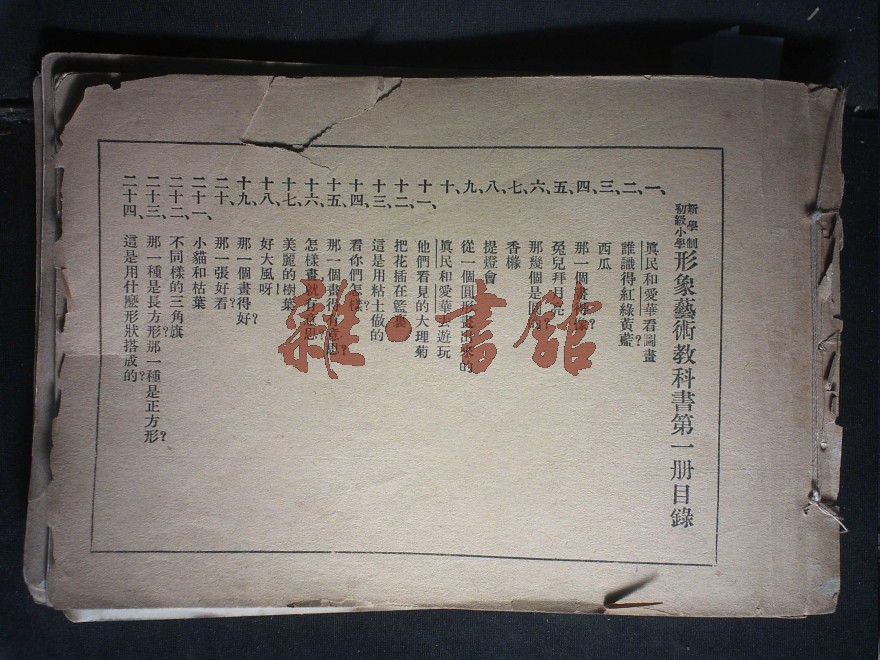 新學制
初級小學
形象藝術教科書第一册目錄
一、眞民和愛華看圖畫
二、誰識得紅綠黃藍?
三、西瓜
四、那一個畫得像?
五、兔兒拜月亮
六、那幾個是圓的?
七、香櫞
八、提燈會
九、從一個圓形畫出來的
十、眞民和愛華去遊玩
十一、他們看見的大理菊
十二、把花插在籃裏
十三、這是用粘土做的
十四、看你們怎樣?
十五、那一個畫得有意思?
十六、怎樣畫就有意思
十七、美麗的樹葉
十八、好大風呀!
十九、那一個畫得好?
二十、那一張好看?
二十一、小貓和枯葉
二十二、不同樣的三角旗
二十三、那一種是長方形?那一種是正方形?
二十四、這是用什麼形狀搭成的?
雜·書館